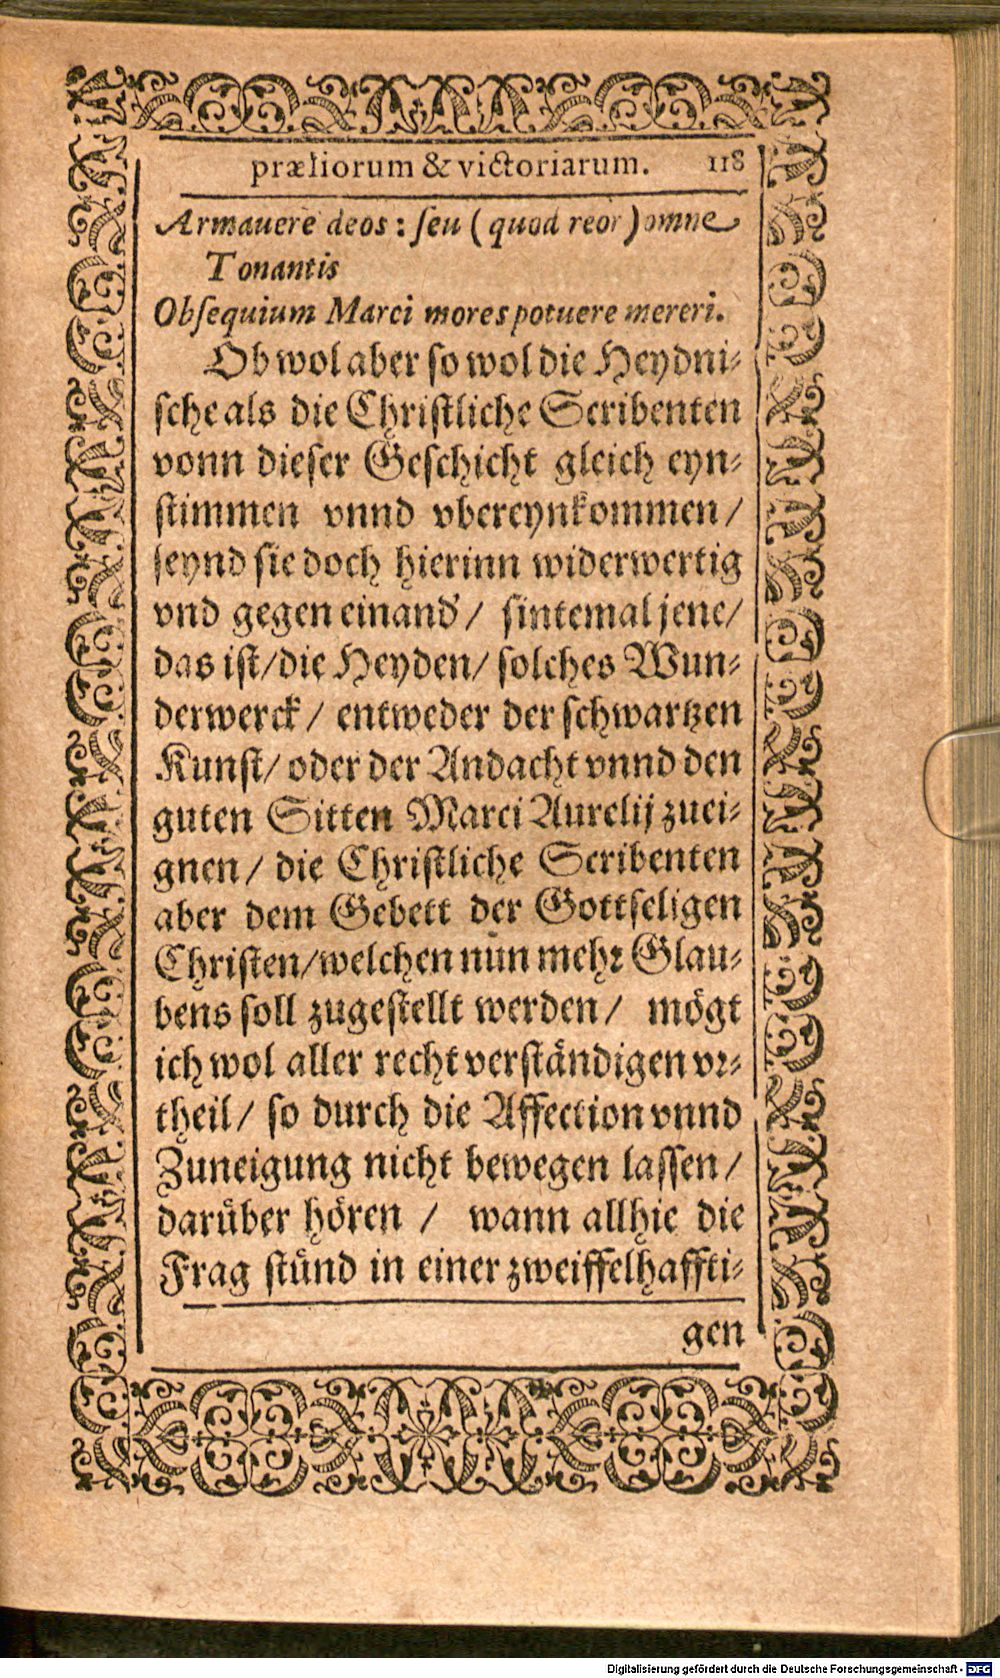 præliorum & victoriarum. 118
Armauere deos: ſeu (quod reor) omne
Tonantis
Obſequium Marci mores potuere mereri.
Ob wol aber ſo wol die Heydni-
ſche als die Chriſtliche Scribenten
vonn dieſer Geſchicht gleich eyn-
ſtimmen vnnd vbereynkommen/
ſeynd ſie doch hierinn widerwertig
vnd gegen einand'/ ſintemal jene/
das iſt/die Heyden/ ſolches Wun-
derwerck/ entweder der ſchwartzen
Kunſt/ oder der Andacht vnnd den
guten Sitten Marci Aurelij zuei-
gnen/ die Chriſtliche Scribenten
aber dem Gebett der Gottſeligen
Chriſten/welchen nůn mehr Glau-
bens ſoll zugeſtellt werden/ mögt
ich wol aller recht verſtändigen vr-
theil/ ſo durch die Affection vnnd
Zuneigung nicht bewegen laſſen/
darüber hören/ wann allhie die
Frag ſtünd in einer zweiffelhaffti-
gen
Digitalisierung gefördert durch die Deutsche Forschungsgemeinschaft - DFG